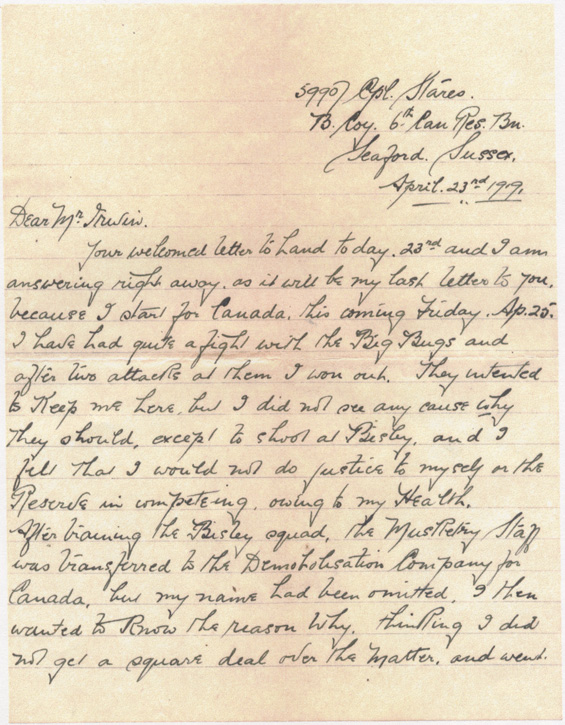 59907 Cpl. Stares.
B. Coy. 6th Can Res. Bn.
Seaford. Sussex.
April. 23rd 1919.
Dear Mr Irwin.
Your welcomed letter to hand today. 23rd and I am
answering right away. as it will be my last letter to you.
because I start for Canada. this coming Friday. Ap. 25.
I have had quite a fight with the Big Bugs and
after two attacks at them I won out. They intented
to Keep me here, but I did not see any cause why
they should, except to shoot at Bisley, and I
felt that I would not do justice to myself or the
Reserve in competeing, owing to my Health.
After training the Bisley squad, the Musketry Staff
was transferred to the Demobolisation Company for
Canada, but my name had been omitted, I then
wanted to Know the reason Why, thinking I did
not get a square deal over the Matter, and went.